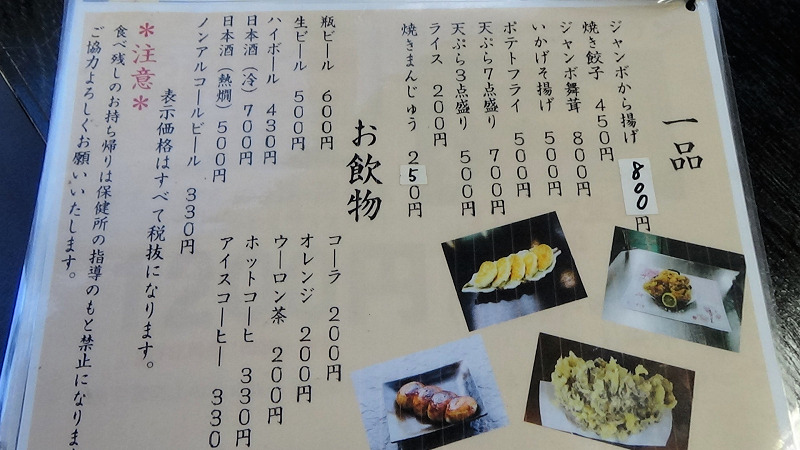 一品
ジャンボから揚げ 800円
焼き餃子 450円
ジャンボ舞茸 800円
いかげそ揚げ 500円
ポテトフライ 500円
天ぷら7点盛り 700円
天ぷら3点盛り 500円
ライス 200円
焼きまんじゅう 250円
お飲物
瓶ビール 600円
生ビール 500円
ハイボール 430円
日本酒(冷) 700円
日本酒(熱燗) 500円
ノンアルコールビール 330円
コーラ 200円
オレンジ 200円
ウーロン茶 200円
ホットコーヒ 330円
アイスコーヒー 330
*注意*
表示価格はすべて税抜になります。
食べ残しのお持ち帰りは保健所の指導のもと禁止になりま
ご協力よろしくお願いいたします。